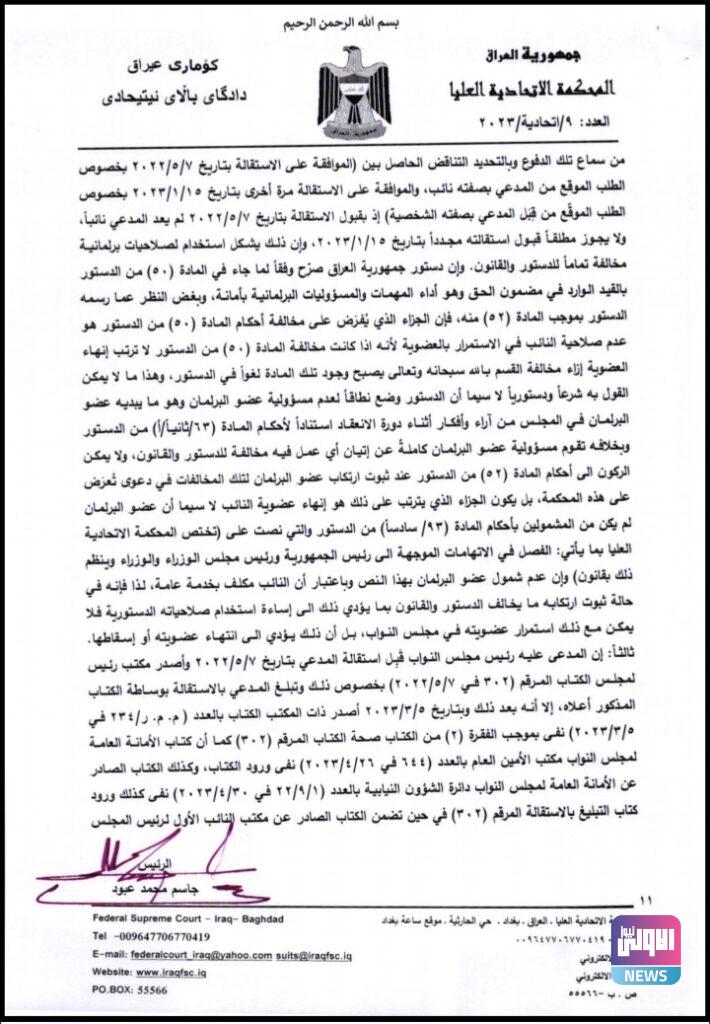 بسم الله الرحمن الرحيم
جمهورية العراق
المحكمة الاتحادية العليا
العدد: ٩/اتحادية/٢٠٢٣
كۆماری عیراق
دادگای باڵای ئیتیحادی
جمهورية العراق
من سماع تلك الدفوع وبالتحديد التناقض الحاصل بين (الموافقة على الاستقالة بتاريخ ٢٠٢٢/٥/٧ بخصوص
الطلب الموقع من المدعي بصفته نائب، والموافقة على الاستقالة مرة أخرى بتاريخ ٢٠٢٣/١/١٥ بخصوص
الطلب الموقّع من قِبَل المدعي بصفته الشخصية) إذ بقبول الاستقالة بتاريخ ٢٠٢٢/٥/٧ لم يعد المدعي نائباً،
ولا يجوز مطلقاً قبول استقالته مجدداً بتاريخ ٢٠٢٣/١/١٥، وإن ذلك يشكل استخدام لصلاحيات برلمانية
مخالفة تماماً للدستور والقانون. وإن دستور جمهورية العراق صرّح وفقاً لما جاء في المادة (٥٠) من الدستور
بالقيد الوارد في مضمون الحق وهو أداء المهمات والمسؤوليات البرلمانية بأمانة، وبغض النظر عما رسمه
الدستور بموجب المادة (٥٢) منه، فإن الجزاء الذي يُفرَض على مخالفة أحكام المادة (٥٠) من الدستور هو
عدم صلاحية النائب في الاستمرار بالعضوية لأنه اذا كانت مخالفة المادة (٥٠) من الدستور لا ترتب إنهاء
العضوية إزاء مخالفة القسم بالله سبحانه وتعالى يصبح وجود تلك المادة لغواً في الدستور، وهذا ما لا يمكن
القول به شرعاً ودستورياً لا سيما أن الدستور وضع نطاقاً لعدم مسؤولية عضو البرلمان وهو ما يبديه عضو
البرلمان في المجلس من آراء وأفكار أثناء دورة الانعقاد استناداً لأحكام المادة (٦٣/ثانياً/أ) من الدستور
وبخلافه تقوم مسؤولية عضو البرلمان كاملةً عن إتيان أي عمل فيه مخالفة للدستور والقانون، ولا يمكن
الركون الى أحكام المادة (٥٢) من الدستور عند ثبوت ارتكاب عضو البرلمان لتلك المخالفات في دعوى تُعرَض
على هذه المحكمة، بل يكون الجزاء الذي يترتب على ذلك هو إنهاء عضوية النائب لا سيما أن عضو البرلمان
لم يكن من المشمولين بأحكام المادة (٩٣/ سادساً) من الدستور والتي نصت على (تختص المحكمة الاتحادية
العليا بما يأتي: الفصل في الاتهامات الموجهة الى رئيس الجمهورية ورئيس مجلس الوزراء والوزراء وينظم
ذلك بقانون) وإن عدم شمول عضو البرلمان بهذا النص وباعتبار أن النائب مكلف بخدمة عامة، لذا فإنه في
حالة ثبوت ارتكابه ما يخالف الدستور والقانون بما يؤدي ذلك الى إساءة استخدام صلاحياته الدستورية فلا
يمكن مع ذلك استمرار عضويته في مجلس النواب، بل أن ذلك يؤدي الى انتهاء عضويته أو إسقاطها.
ثالثاً: إن المدعى عليه رئيس مجلس النواب قَبِل استقالة المدعي بتاريخ ٢٠٢٢/٥/٧ وأصدر مكتب رئيس
المجلس الكتاب المرقم (٣٠٢ في ٢٠٢٢/٥/٧) بخصوص ذلك وتبلغ المدعي بالاستقالة بوساطة الكتاب
المذكور أعلاه، إلا أنه بعد ذلك وبتاريخ ٢٠٢٣/٣/٥ أصدر ذات المكتب الكتاب بالعدد (م.م.ر/٢٣٤ في
٢٠٢٣/٣/٥) نفى بموجب الفقرة (٢) من الكتاب صحة الكتاب المرقم (٣٠٢) كما أن كتاب الأمانة العامة
لمجلس النواب مكتب الأمين العام بالعدد (٦٤٤ في ٢٠٢٣/٤/٢٦) نفى ورود الكتاب، وكذلك الكتاب الصادر
عن الأمانة العامة لمجلس النواب دائرة الشؤون النيابية بالعدد (٢٢/٩/١ في ٢٠٢٣/٤/٣٠) نفى كذلك ورود
كتاب التبليغ بالاستقالة المرقم (٣٠٢) في حين تضمن الكتاب الصادر عن مكتب النائب الأول لرئيس المجلس
الرئيس
جاسم محمد عبود
١١
Federal Supreme Court – Iraq- Baghdad
Tel –009647706770419
E-mail: federalcourt_iraq@yahoo.com suits@iraqfsc.iq
Website: www.iraqfsc.iq
PO.BOX: 55566
ة الاتحادية العليا . العراق . بغداد . حي الحارثية . موقع ساعة بغداد
٠٠٩٦٤٧٧٠٦٧٧٠٤١٩
لالكتروني
الالكتروني
ص . ب -٥٥٥٦٦
الاولى نيوز
NEWS